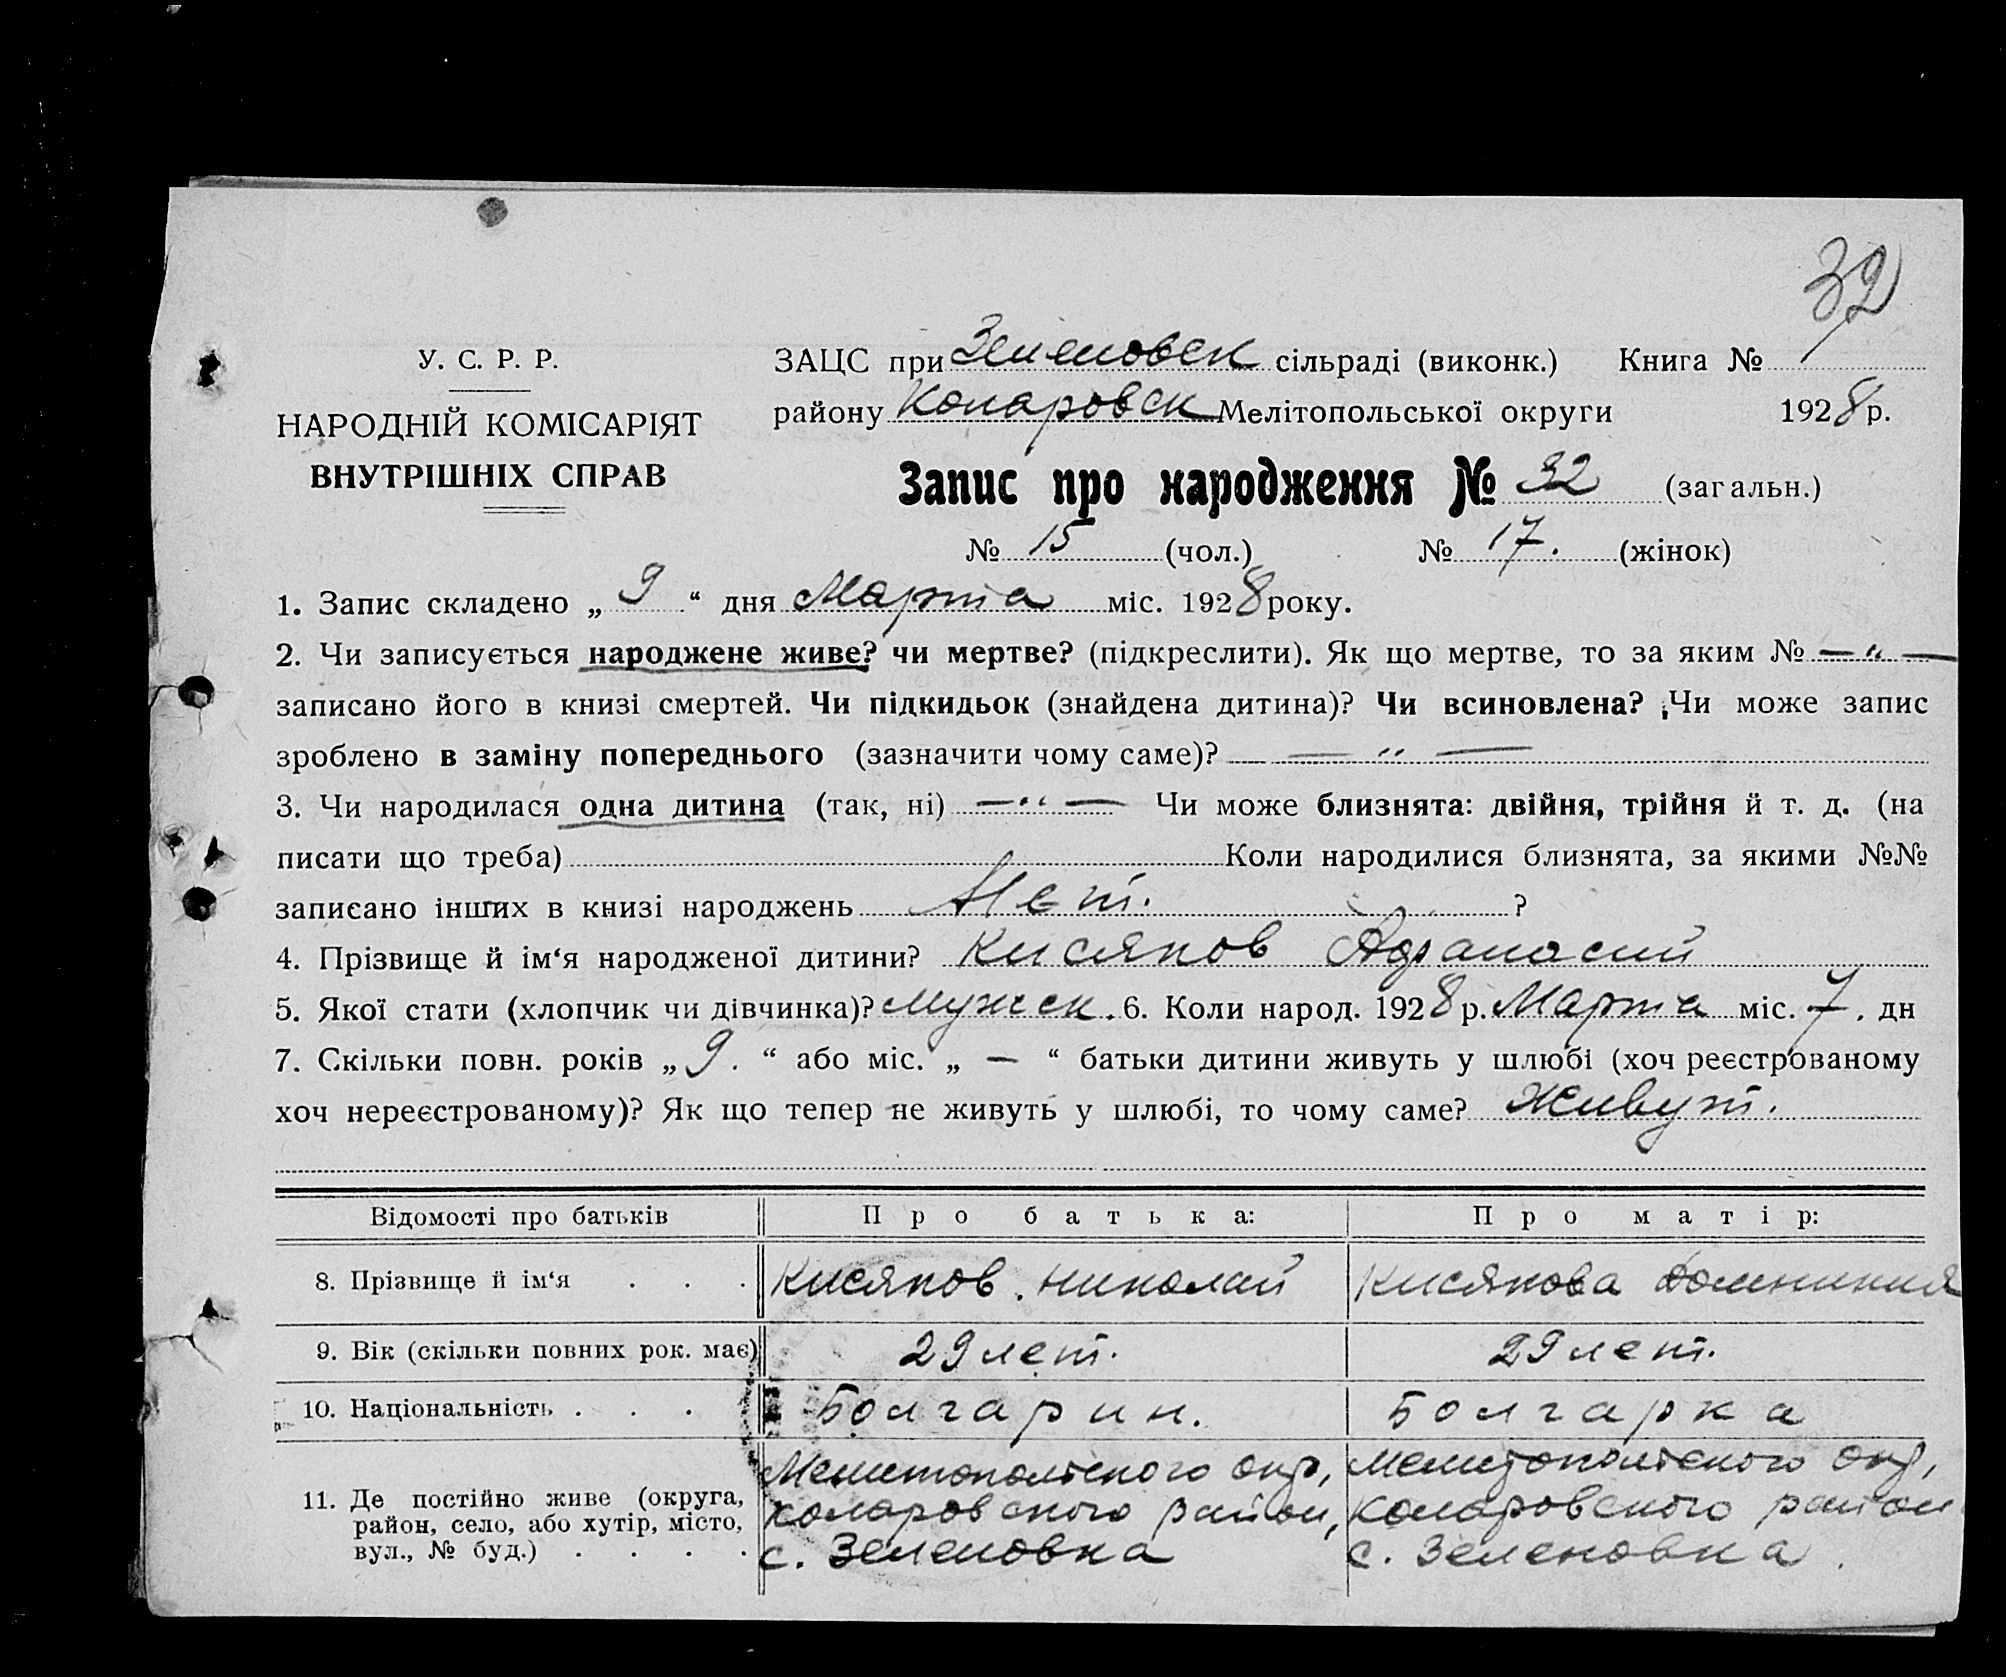 32
У. С. Р. Р.
НАРОДНІЙ КОМІСАРІЯТ
ВНУТРІШНІХ СПРАВ
ЗАЦС при Зеленовск сільраді (виконк.) Книга №
району Коларовск Мелітопольської округи 1928 р.
Запис про народження № 32 (загальн.)
№ 15 (чол.) № 17. (жінок)
1. Запис складено „ 9 “ дня Марта міс. 1928 року.
2. Чи записується народжене живе? чи мертве? (підкреслити). Як що мертве, то за яким № — „ —
записано його в книзі смертей. Чи підкидьок (знайдена дитина)? Чи всиновлена? Чи може запис
зроблено в заміну попереднього (зазначити чому саме)? — „ —
3. Чи народилася одна дитина (так, ні) — „ — Чи може близнята: двійня, трійня й т. д. (на
писати що треба) Коли народилися близнята, за якими №№
записано інших в книзі народжень Нет. ?
4. Прізвище й ім‘я народженої дитини? Кисяков Афанасий
5. Якої стати (хлопчик чи дівчинка)? мужск. 6. Коли народ. 1928 р. Марта міс. 7. дн
7. Скільки повн. років „ 9. “ або міс. „ — “ батьки дитини живуть у шлюбі (хоч реєстрованому
хоч нереєстрованому)? Як що тепер не живуть у шлюбі, то чому саме? Живут.
Відомості про батьків Про батька: Про матір:
8. Прізвище й ім‘я . . . Кисяков. Николай Кисякова
9. Вік (скільки повних рок. має) 29 лет. 29 лет.
10. Національність . . . Болгарин. Болгарка
11. Де постійно живе (округа, район, село, або хутір, місто, вул., № буд.) . . . .
Мелитопольского окр, Коларовского район, с. Зеленовка
Мелитопольского окр, Коларовского район с. Зеленовка.